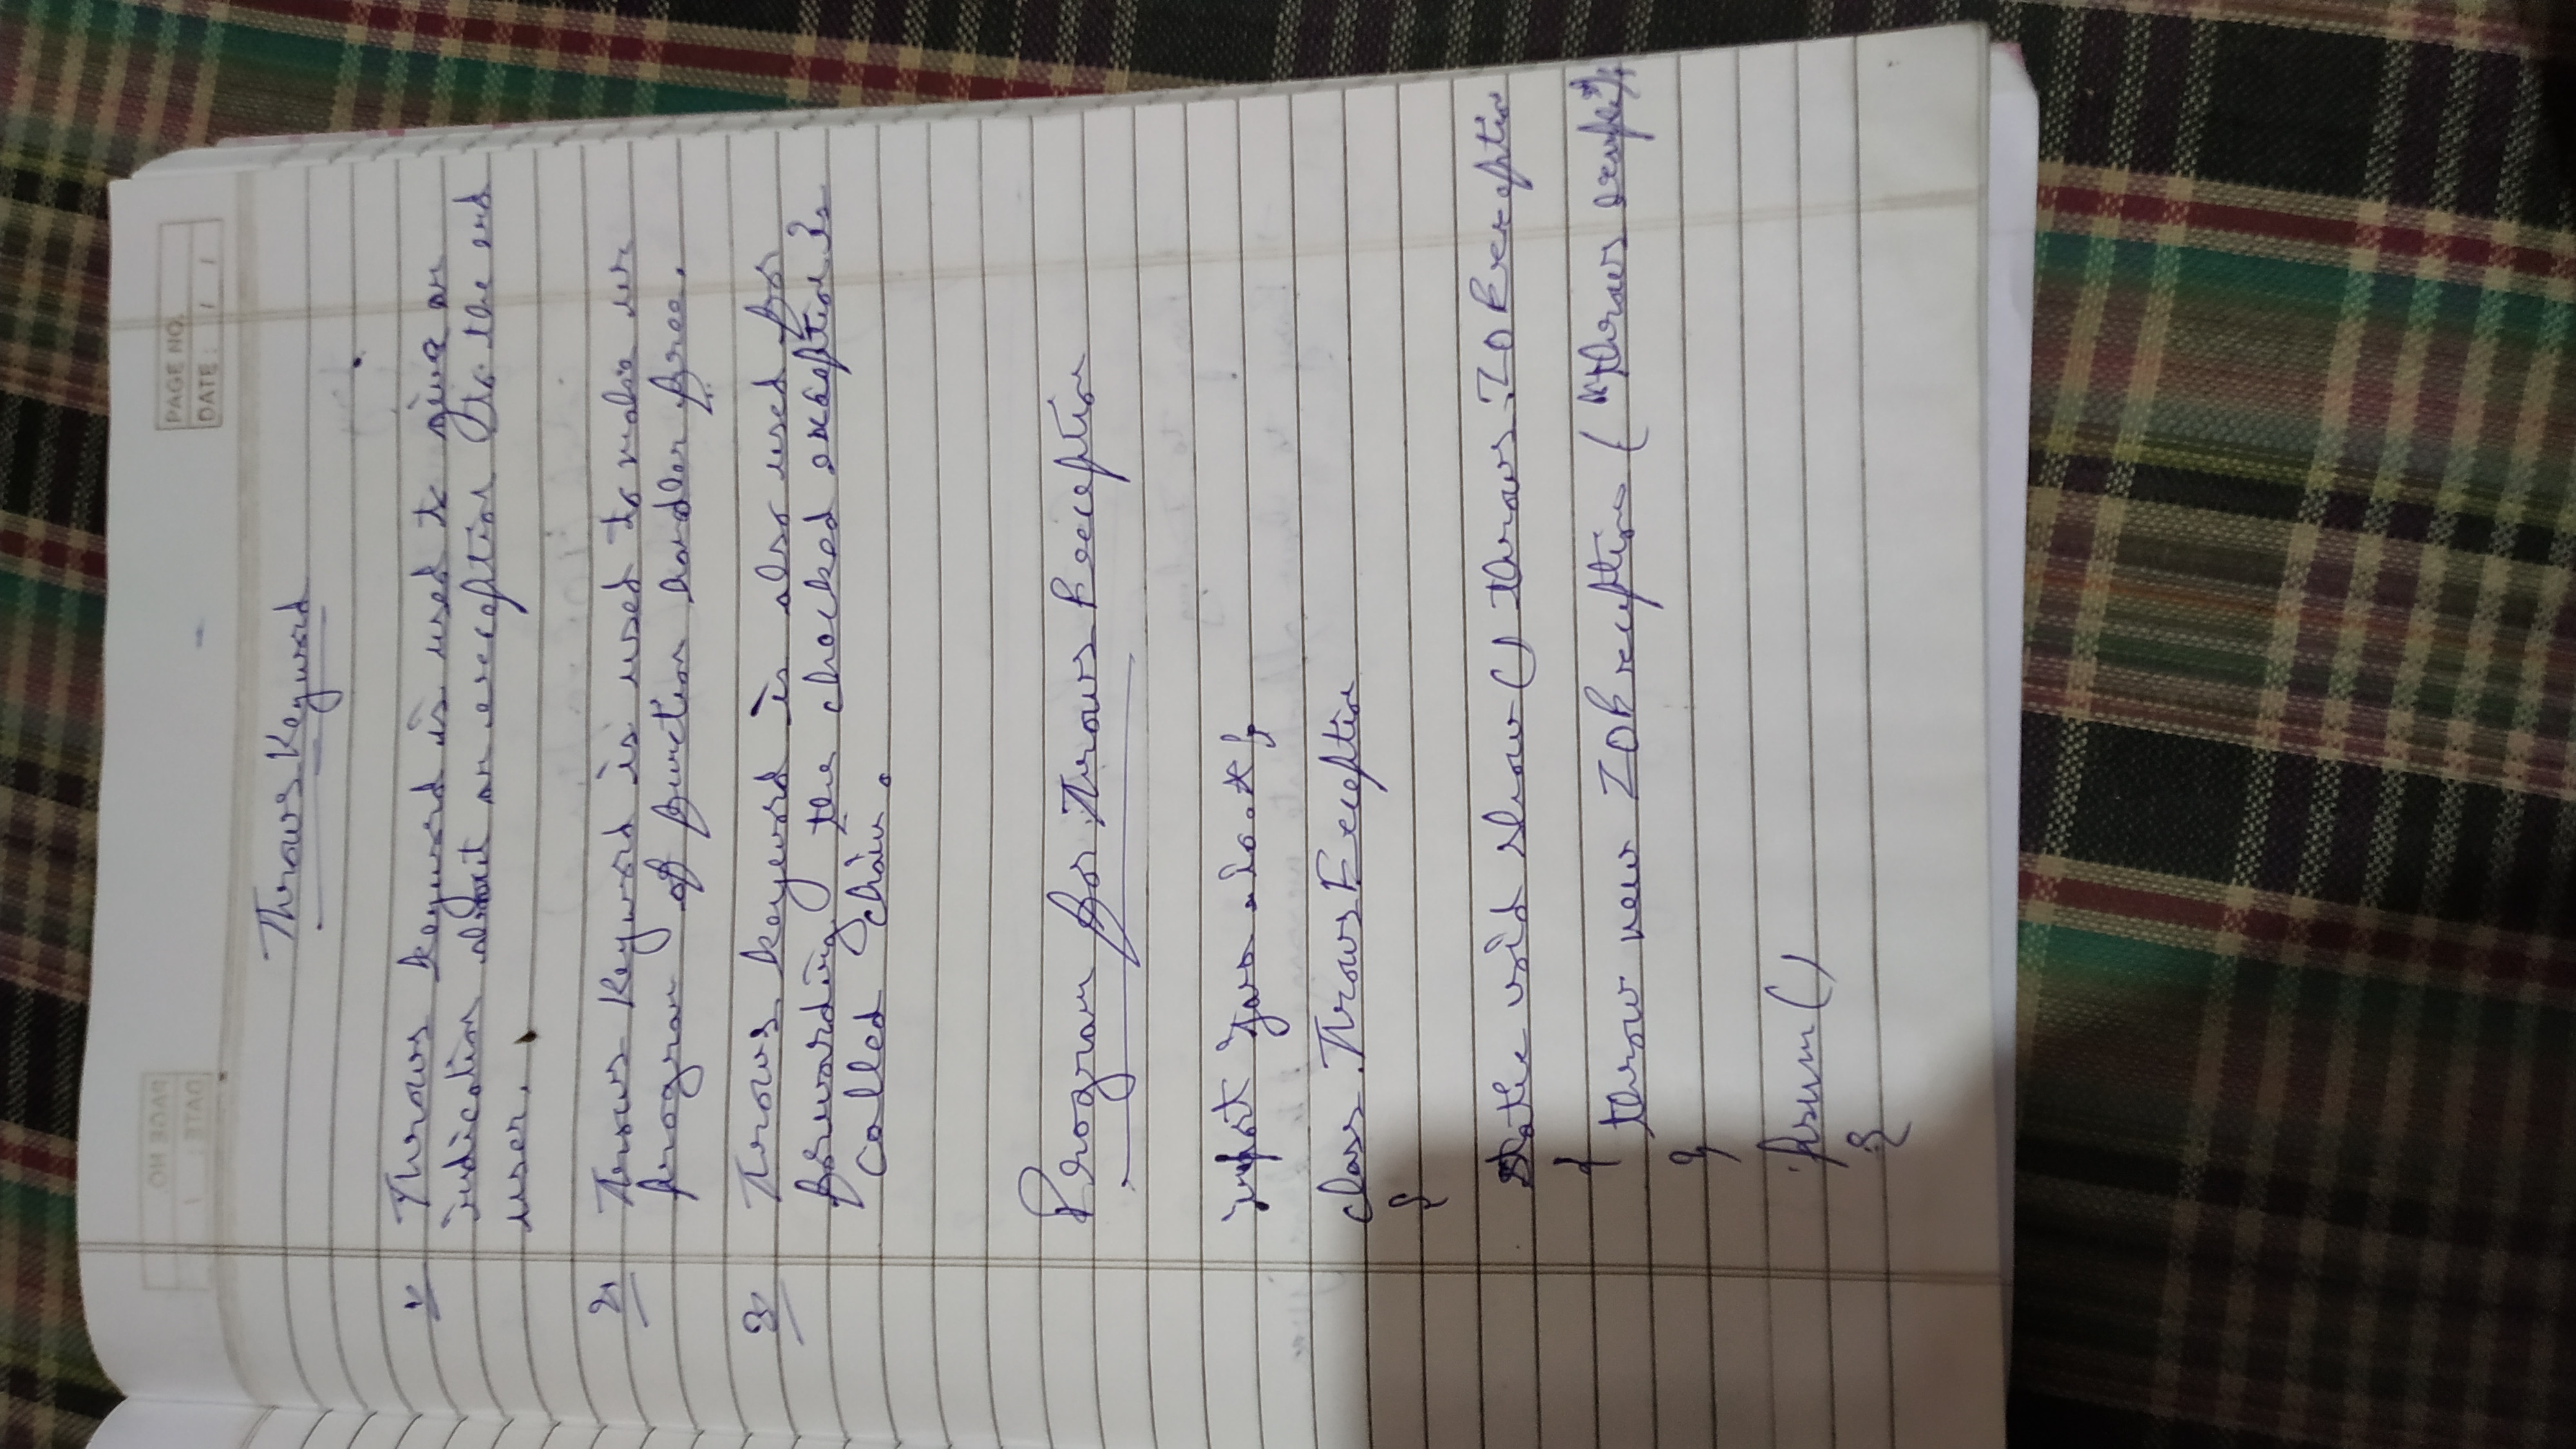 PAGE NO.
DATE : / /
Throws Keyword
1. Throws keyword is used to give an
indication about an exception to the end
user.
2. Throws Keyword is used to make
program of function handler free.
3. Throws keyword is also used for
forwarding the checked exception is
called chain.
Program for Throws Exception
import java.io.*;
class ThrowsException
{
static void show() throws IOException
{
throw new IOException ("throws
}
psum()
{